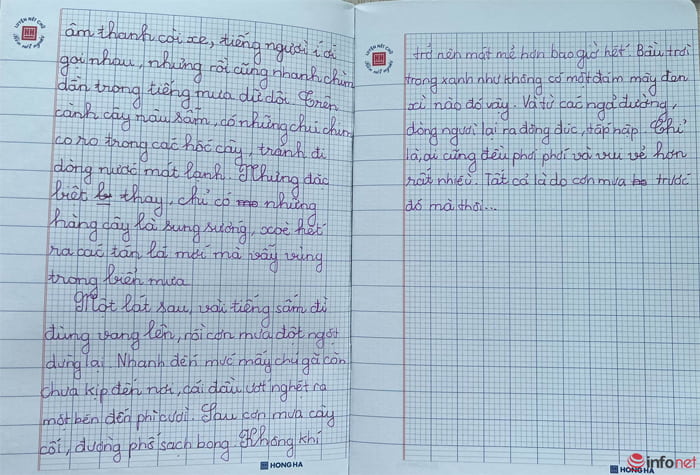 LUYỆN NÉT CHỮ
RÈN NẾT NGƯỜI
âm thanh còi xe, tiếng người í ới
gọi nhau, nhưng rồi cũng nhanh chìm
dần trong tiếng mưa dữ dội. Trên
cành cây nâu sẫm, có những chú chim
co ro trong các hốc cây, tránh đi
dòng nước mát lạnh. Nhưng đặc
biệt thay, chỉ có những
hàng cây là sung sướng, xoè hết
ra các tán lá mới mà vẫy vùng
trong biển mưa.
Một lát sau, vài tiếng sấm đì
đùng vang lên, rồi cơn mưa đột ngột
dừng lại. Nhanh đến mức mấy chú gà còn
chưa kịp đến nơi, cái đầu ướt nghẹt ra
một bên đến phì cười. Sau cơn mưa cây
cối, đường phố sạch bong. Không khí
HONG HA
LUYỆN NÉT CHỮ
RÈN NẾT NGƯỜI
trở nên mát mẻ hơn bao giờ hết. Bầu trời
trong xanh như không có một đám mây đen
xì nào đó vậy. Và từ các ngả đường,
dòng người lại ra đông đúc, tấp nập. Chỉ
là, ai cũng đều phơi phới và vui vẻ hơn
rất nhiều. Tất cả là do cơn mưa trước
đó mà thôi...
HONG HA
infonet